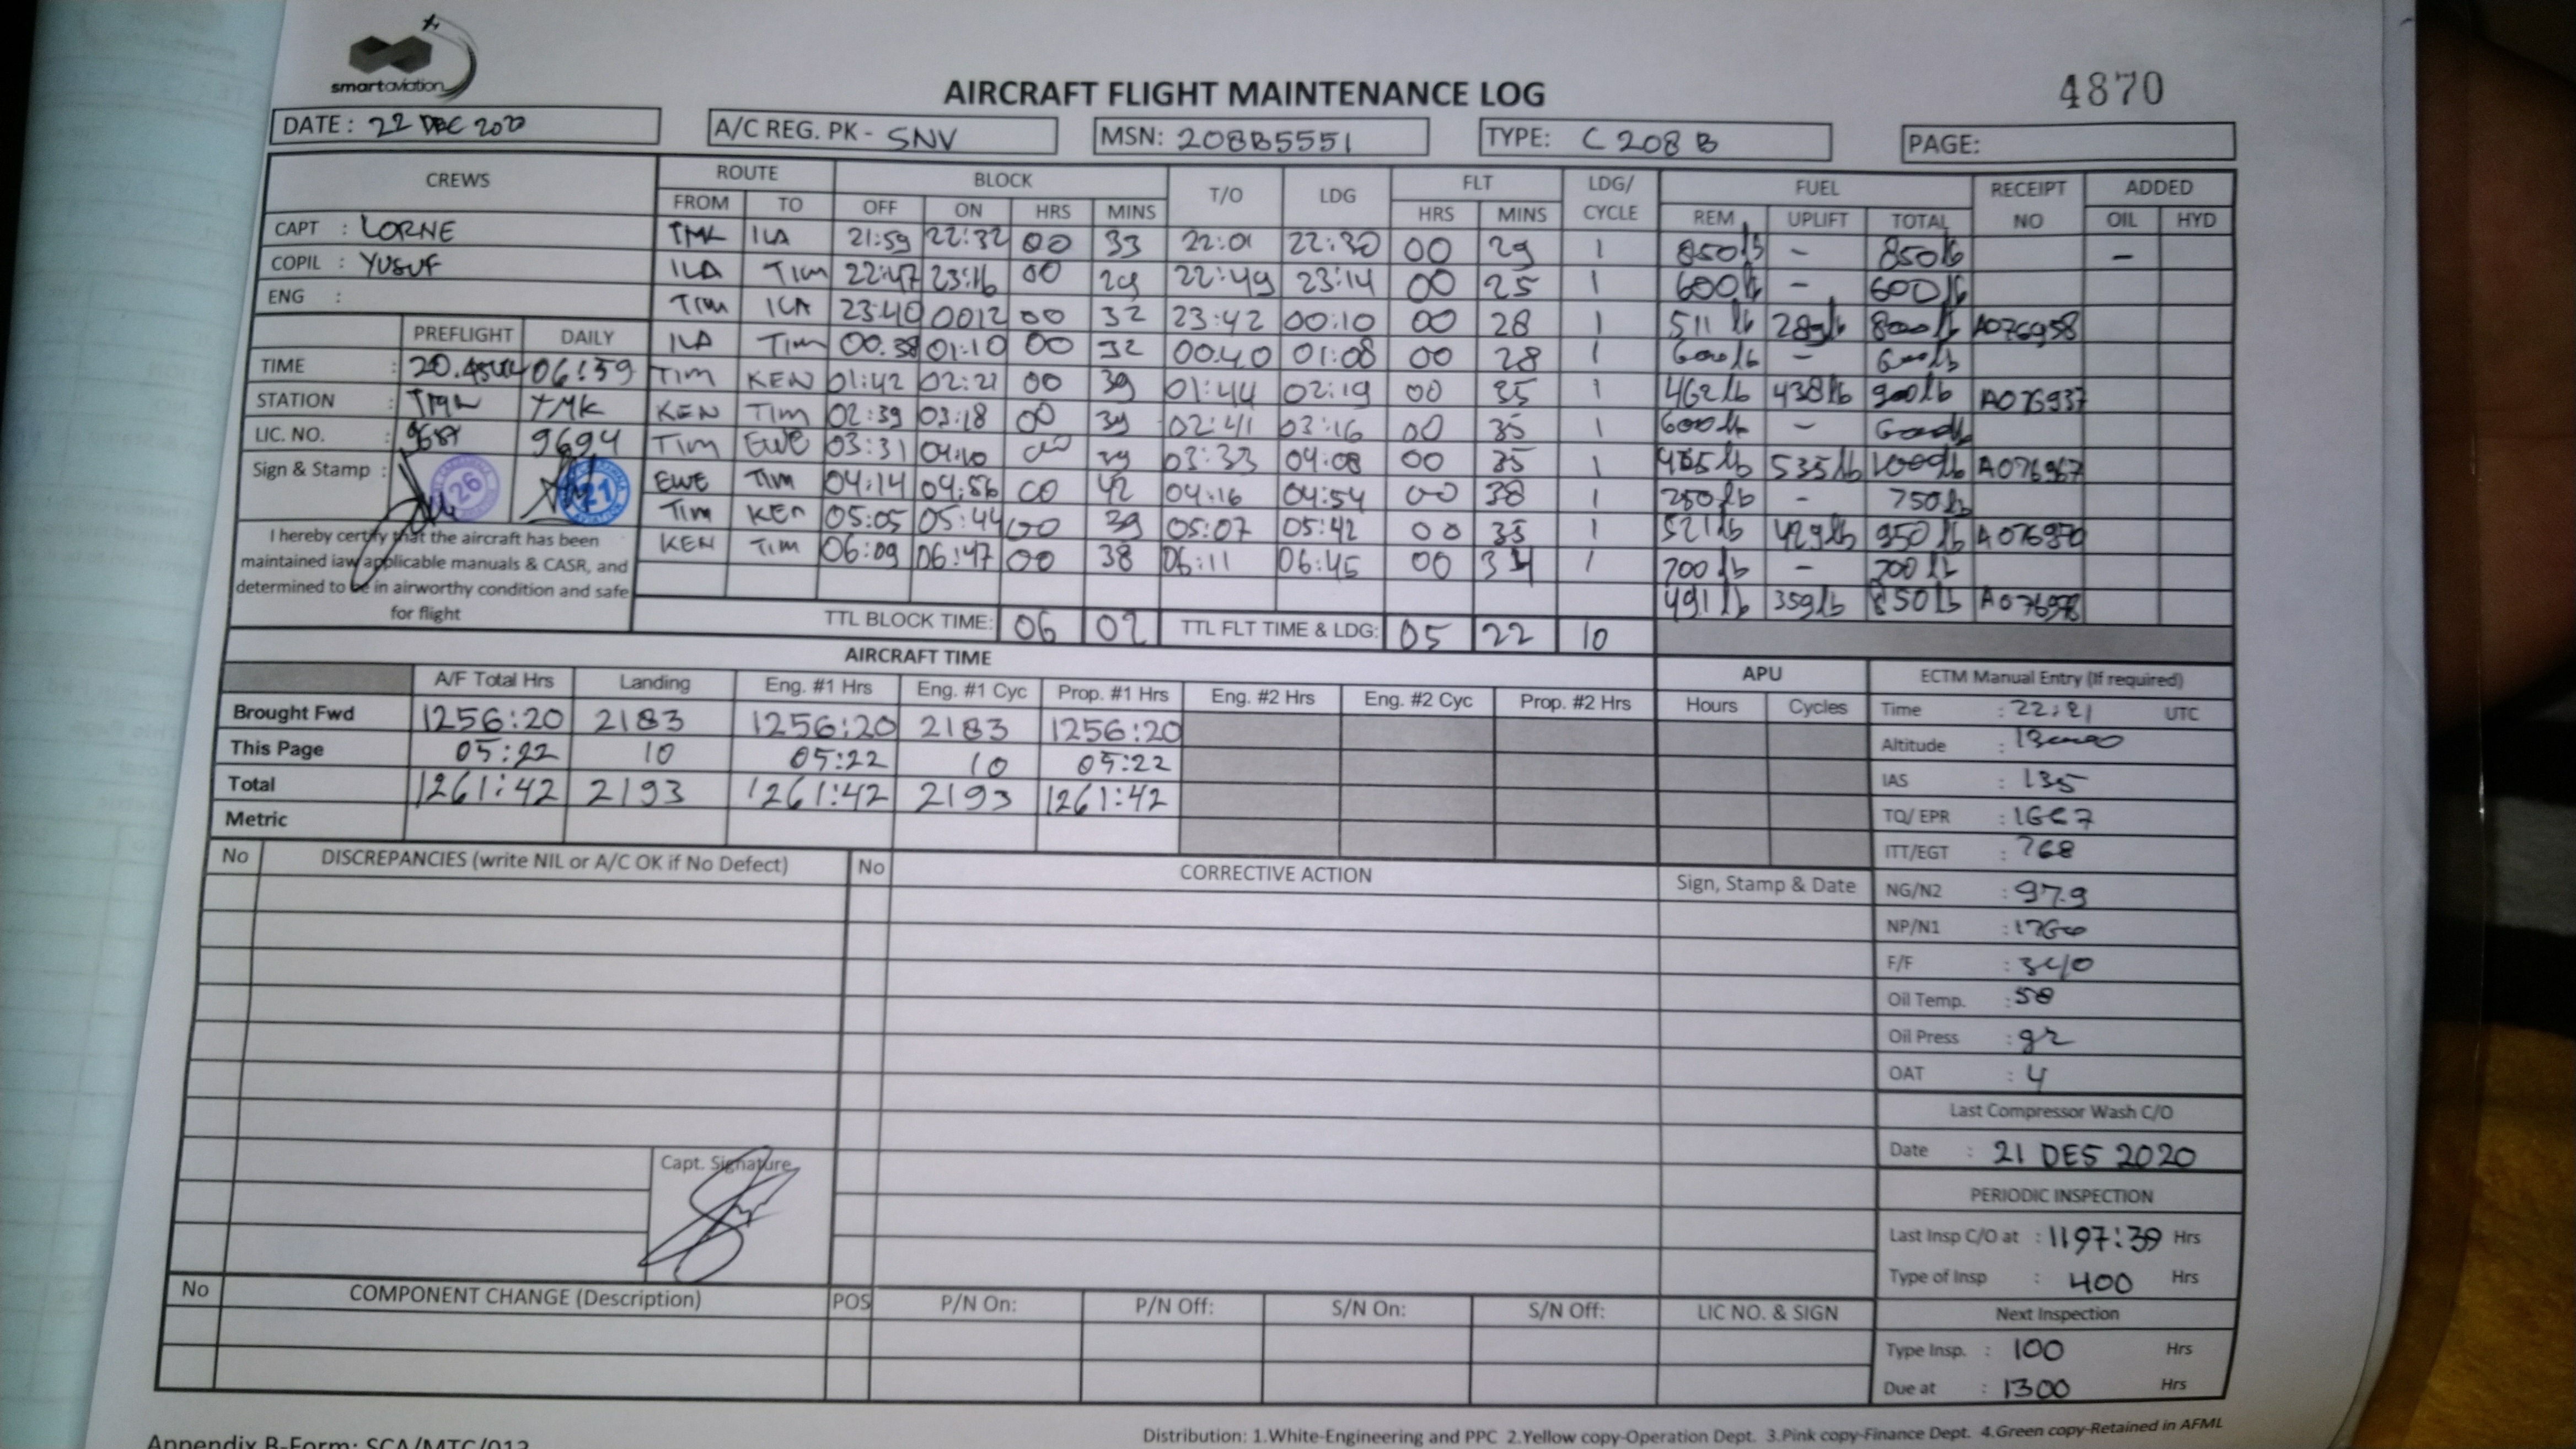 smartaviation
AIRCRAFT FLIGHT MAINTENANCE LOG
4870
DATE : 22 DEC 2020
A/C REG. PK - SNV
MSN: 208B5551
TYPE: C 208 B
PAGE:
CREWS ROUTE BLOCK T/O LDG FLT LDG/ CYCLE FUEL RECEIPT NO ADDED
FROM TO OFF ON HRS MINS HRS MINS REM UPLIFT TOTAL OIL HYD
CAPT : LORNE
COPIL : YUSUF
ENG :
TMK ILA 21:59 22:32 00 33 22:01 22:30 00 29 1 850lb - 850lb -
ILA TIM 22:47 23:16 00 29 22:49 23:14 00 25 1 600lb - 600lb
TIM ILA 23:40 0012 00 32 23:42 00:10 00 28 1 511 lb 289lb 800lb A076958
ILA TIM 00.38 01:10 00 32 00:40 01:08 00 28 1 600lb - 600lb
TIM KEN 01:42 02:21 00 39 01:44 02:19 00 35 1 462lb 438lb 900lb A076937
KEN TIM 02:39 03:18 00 39 02:41 03:16 00 35 1 600lb - 600lb
TIM EWE 03:31 04:10 00 39 03:33 04:08 00 35 1 535lb 1000lb A076967
EWE TIM 04:14 04:56 00 42 04:16 04:54 00 38 1 - 750lb
TIM KEN 05:05 05:44 00 39 05:07 05:42 00 35 1 521lb 429lb 950 lb
KEN TIM 06:09 06:47 00 38 06:11 06:45 00 34 1 700 lb - 700 lb
491 lb 359lb 850lb
PREFLIGHT DAILY
TIME : 06:59
STATION : TMK
LIC. NO. : 9694
Sign & Stamp : 26 21
I hereby certify that the aircraft has been
maintained iaw applicable manuals & CASR, and
determined to be in airworthy condition and safe
for flight
TTL BLOCK TIME: 06 02 TTL FLT TIME & LDG: 05 22 10
AIRCRAFT TIME
A/F Total Hrs Landing Eng. #1 Hrs Eng. #1 Cyc Prop. #1 Hrs Eng. #2 Hrs Eng. #2 Cyc Prop. #2 Hrs
Brought Fwd 1256:20 2183 1256:20 2183 1256:20
This Page 05:22 10 05:22 10 05:22
Total 1261:42 2193 1261:42 2193 1261:42
Metric
APU
Hours Cycles
ECTM Manual Entry (If required)
Time : 22:21 UTC
Altitude :
IAS : 135
TQ/ EPR :
ITT/EGT : 768
NG/N2 : 97.9
NP/N1 :
F/F : 340
Oil Temp. : 58
Oil Press : 92
OAT : 4
Last Compressor Wash C/O
Date : 21 DES 2020
PERIODIC INSPECTION
Last Insp C/O at : 1197:39 Hrs
Type of Insp : 400 Hrs
Next Inspection
Type Insp. : 100 Hrs
Due at : 1300 Hrs
No DISCREPANCIES (write NIL or A/C OK if No Defect) No CORRECTIVE ACTION Sign, Stamp & Date
Capt. Signature
No COMPONENT CHANGE (Description) POS P/N On: P/N Off: S/N On: S/N Off: LIC NO. & SIGN
Appendix B-Form: SCA/MTC/012
Distribution: 1.White-Engineering and PPC 2.Yellow copy-Operation Dept. 3.Pink copy-Finance Dept. 4.Green copy-Retained in AFML